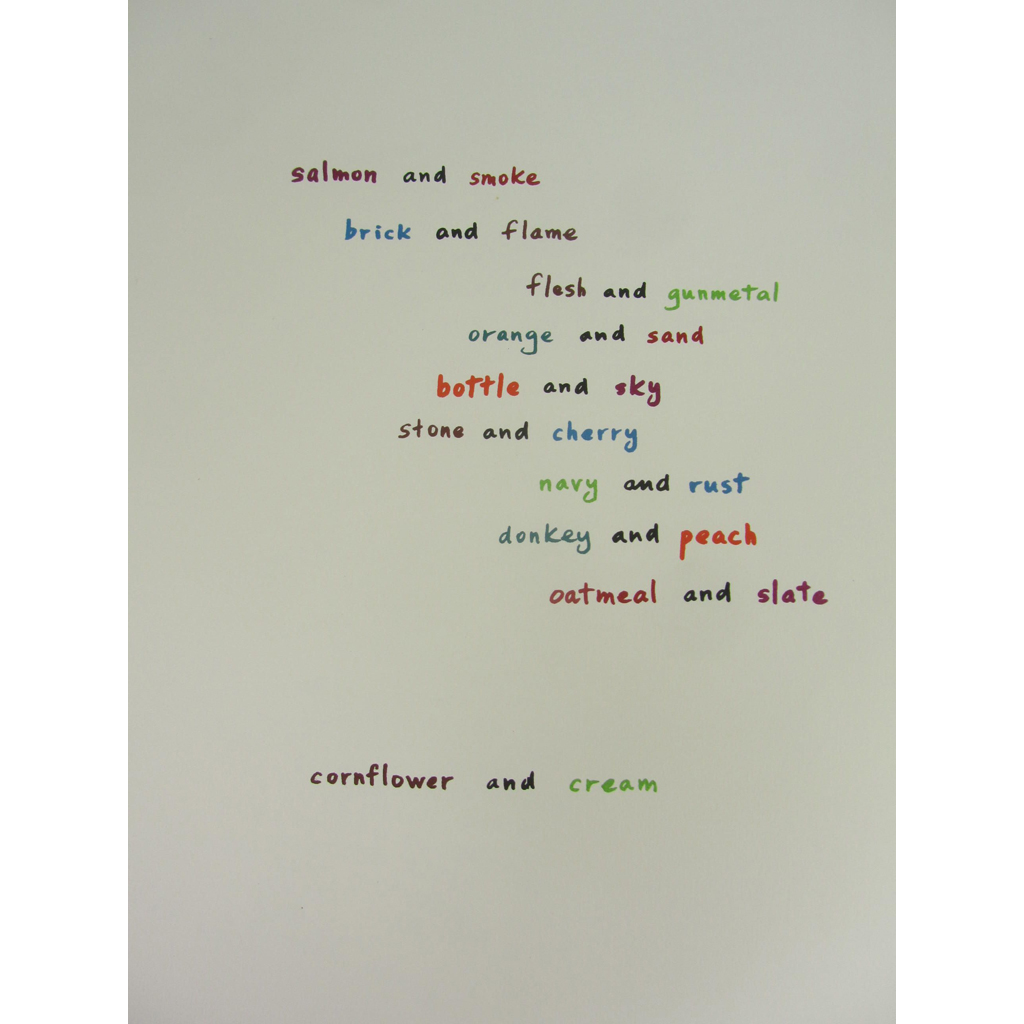 salmon and smoke
brick and flame
flesh and gunmetal
orange and sand
bottle and sky
stone and cherry
navy and rust
donkey and peach
oatmeal and slate
cornflower and cream